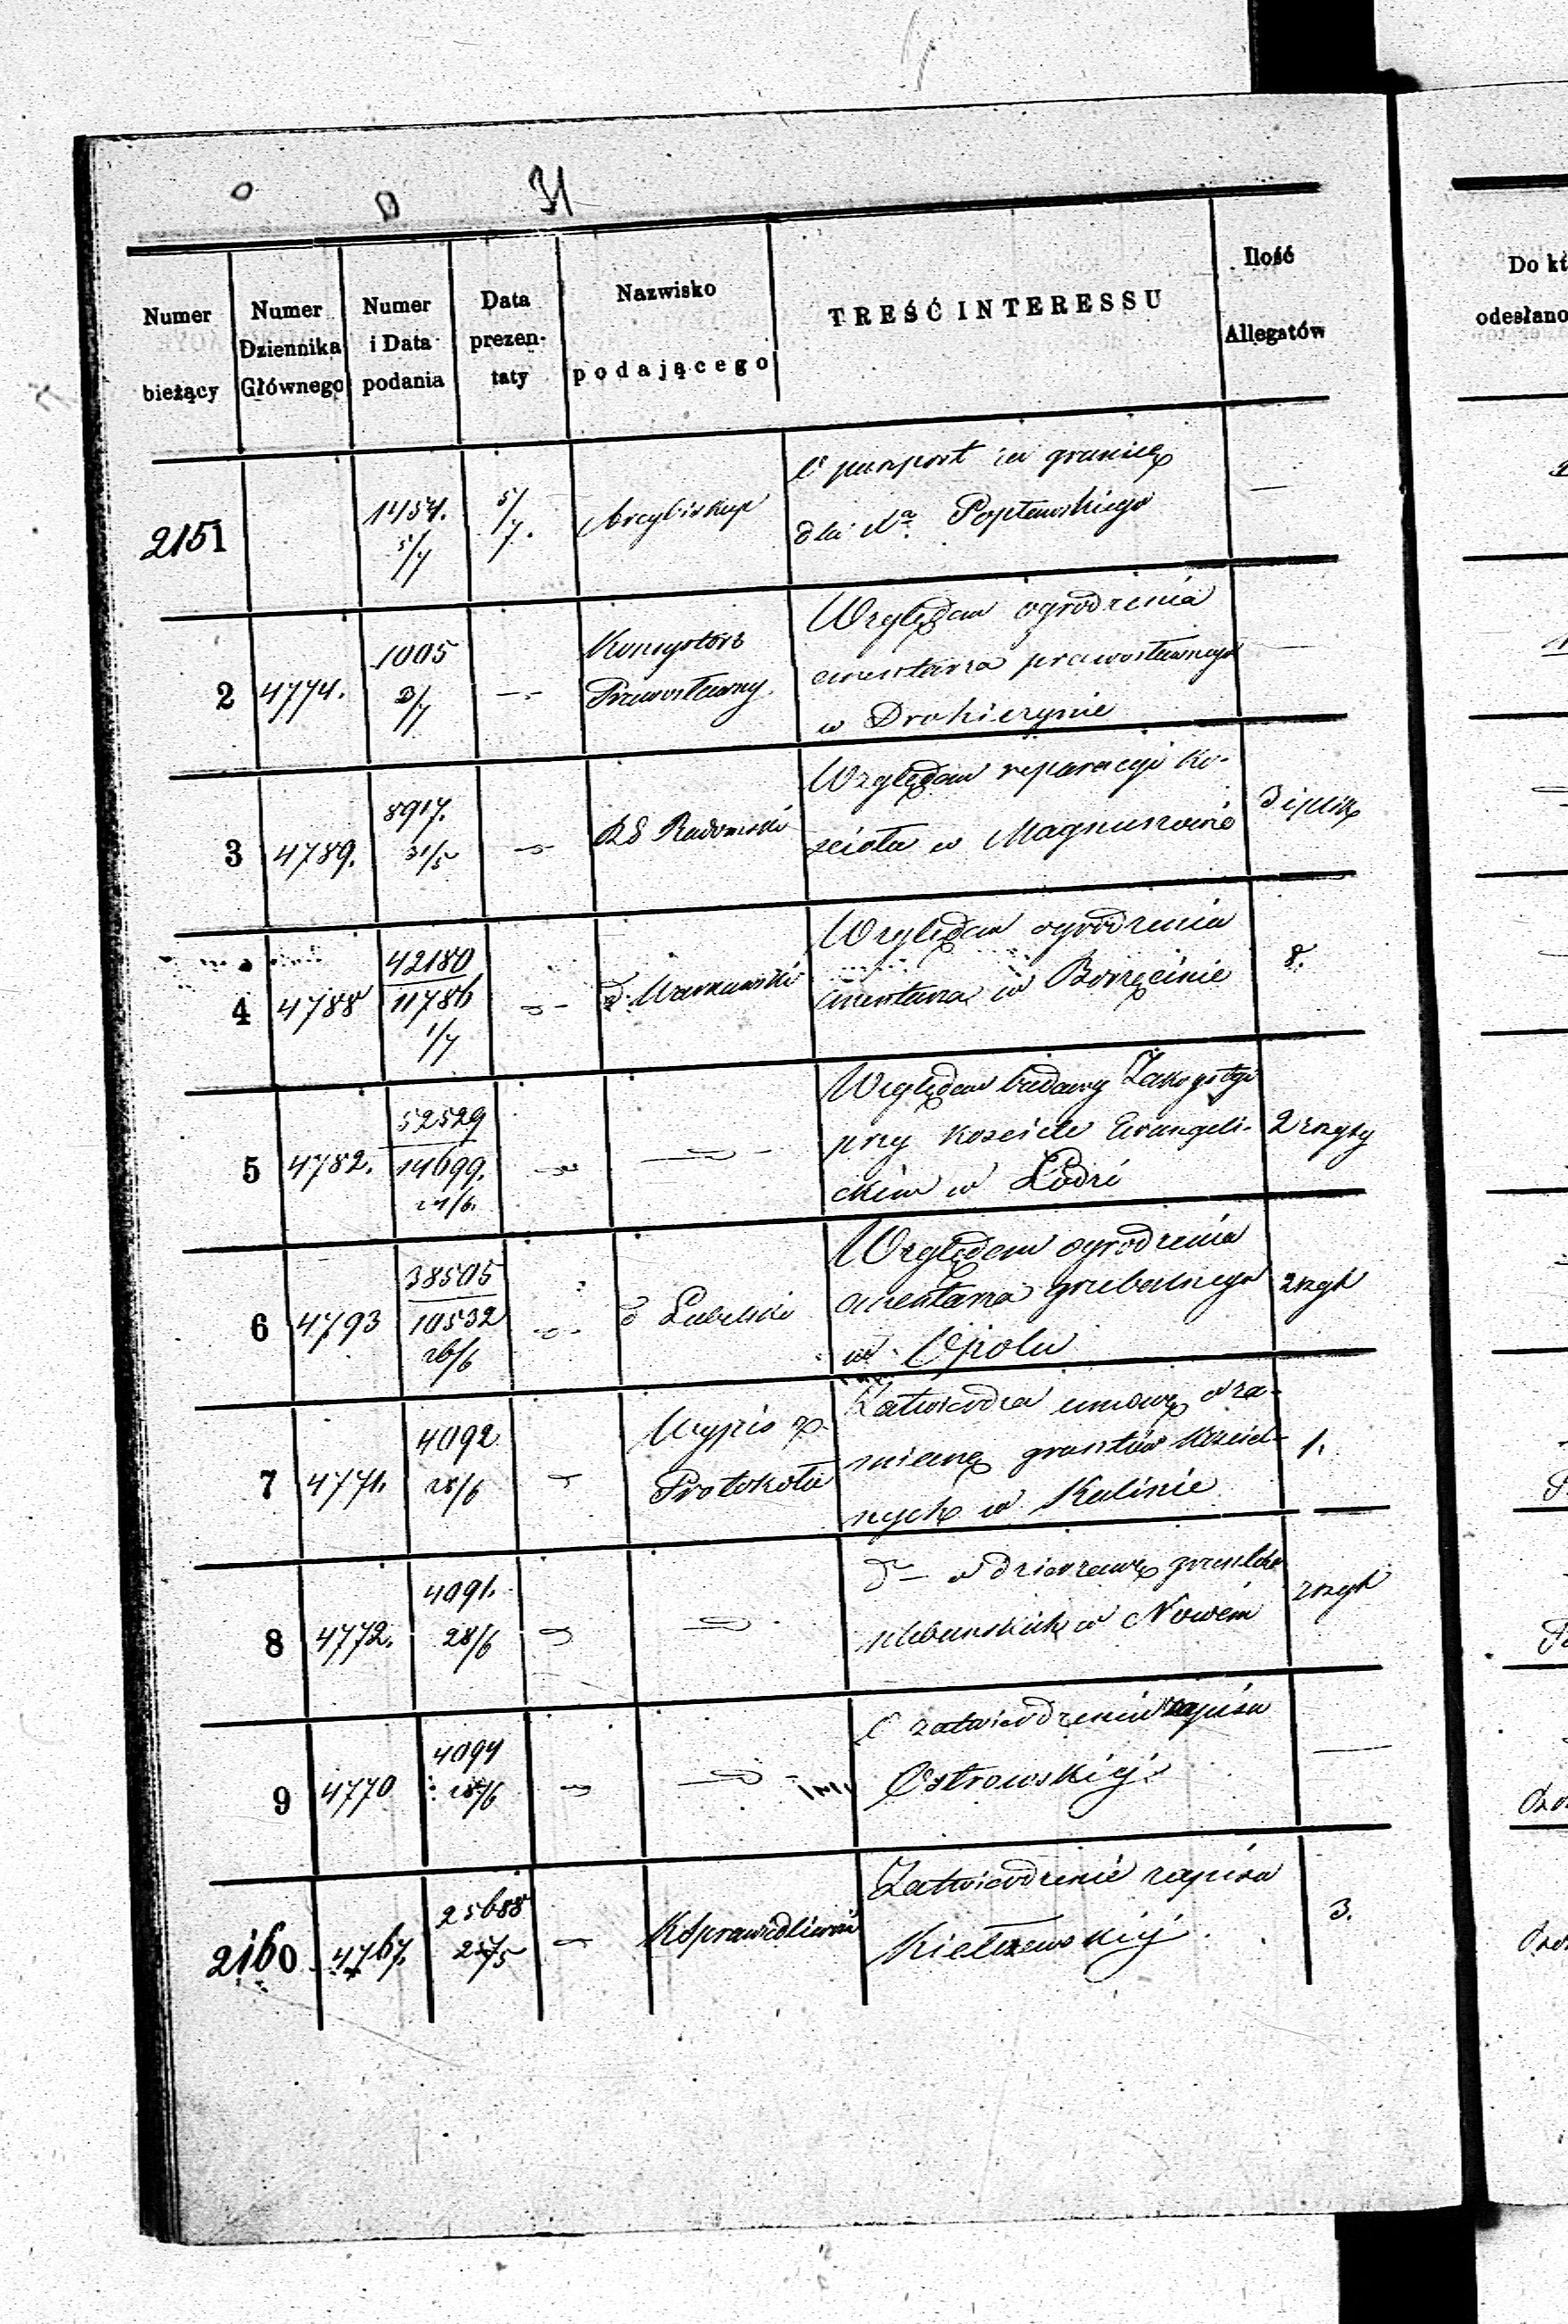 31
Numer bieżący
Numer Dziennika Głównego
Numer i Data podania
Data prezentaty
Nazwisko podającego
TREŚĆ INTERESSU
Ilość Allegatów
Do kt
odesłano
2151
1454.
5/7
5/7.
Arcybiskup
O paszport za granicę
dla Xa. Popławskiego
—
2
4774.
1005
3/7
Konsystorz
Prawosławny
Względem ogrodzenia
cmentarza prawosławnego
w Drohiczynie
—
3
4789.
8917.
31/5
RG Radomski
Względem reparacyi ko-
ścioła w Magnuszewie
4
4788
42180
11786
1/7
d. Warszawski
Względem ogrodzenia
cmentarza w Borzęcinie
8.
5
4782.
52529
14699.
24/6.
Względem budowy Zakrystyi
przy kościele Ewangeli-
ckim w Łodzi
2 zszyty
6
4793
38505
10532
26/6
d Lubelski
Względem ogrodzenia
cmentarza grzebalnego
w Opolu
2 zszyt
7
4771.
4092
28/6
Wypis z
Protokołu
Zatwierdza umowę o za-
mianę gruntów kościel-
nych w Kalinie
1.
8
4772.
4091.
28/6
do — o dzierżawę gruntów
plebańskich w Nowem
2 zszyt
9
4770
4094
28/6
O zatwierdzeniu zapisu
Ostrowskiej
—
2160
4767.
25688
25/5
KSprawiedliwości
Zatwierdzenie zapisu
Kiełczewskiej
3.